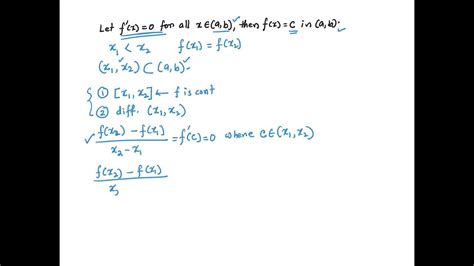 Let f'(x)=0 for all x∈(a,b), then f(x)=C in (a,b).
x₁ < x₂ f(x₁) = f(x₂)
(x₁, x₂) ⊂ (a,b)
① [x₁, x₂] ← f is cont
② diff. (x₁, x₂)
✓ f(x₂) − f(x₁) / x₂ − x₁ = f'(c) = 0 where c∈(x₁, x₂)
f(x₂) − f(x₁) / x₂